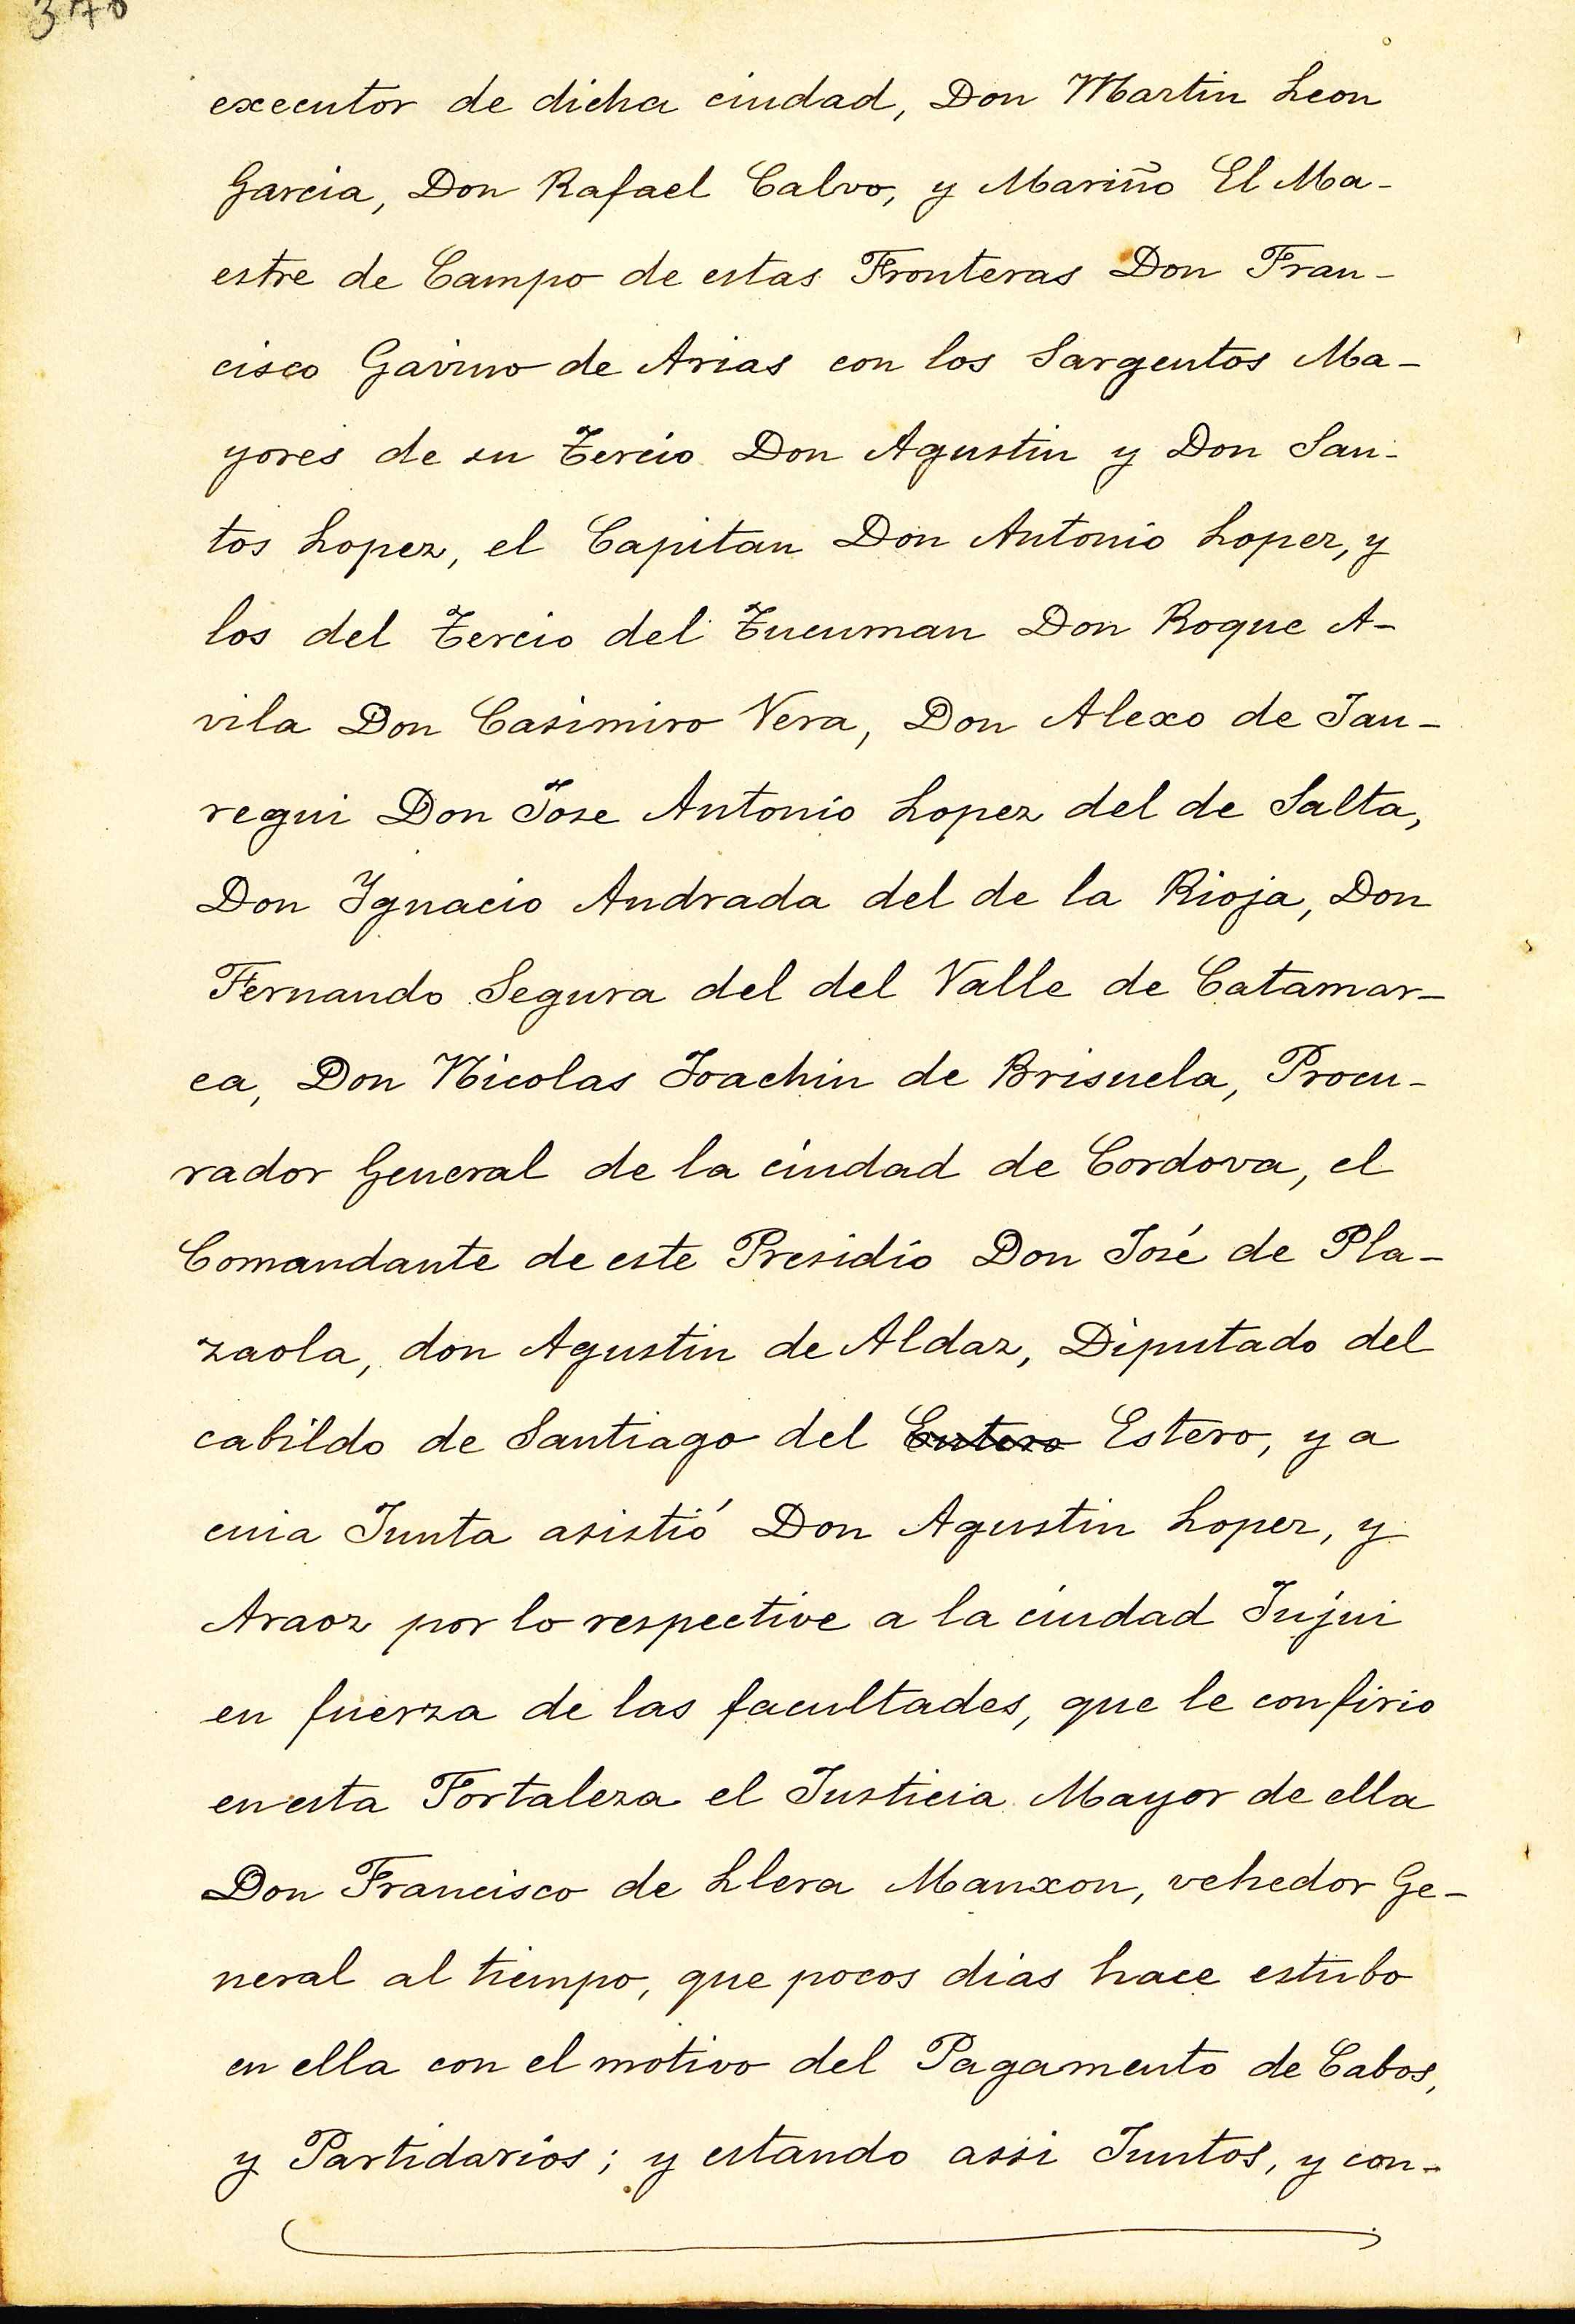 executor de dicha ciudad, Don Martin Leon
Garcia, Don Rafael Calvo, y Mariño El Ma-
estre de Campo de estas Fronteras Don Fran-
cisco Gavino de Arias con los Sargentos Ma-
yores de su Tercio Don Agustin y Don San-
tos Lopez, el Capitan Don Antonio Lopez, y
los del Tercio del Tucuman Don Roque A-
vila Don Casimiro Vera, Don Alexo de Jau-
regui Don Jose Antonio Lopez del de Salta,
Don Ygnacio Andrada del de la Rioja, Don
Fernando Segura del del Valle de Catamar-
ca, Don Nicolas Joachin de Brisuela, Procu-
rador General de la ciudad de Cordova, el
Comandante de este Presidio Don José de Pla-
zaola, don Agustin de Aldaz, Diputado del
cabildo de Santiago del Estero, y a
cuia Junta asistió Don Agustin Lopez, y
Araoz por lo respective a la ciudad Jujui
en fuerza de las facultades, que le confirio
en esta Fortaleza el Justicia Mayor de ella
Don Francisco de Llera Manxon, vehedor Ge-
neral al tiempo, que pocos dias hace estubo
en ella con el motivo del Pagamento de Cabos,
y Partidarios; y estando assi Juntos, y con-